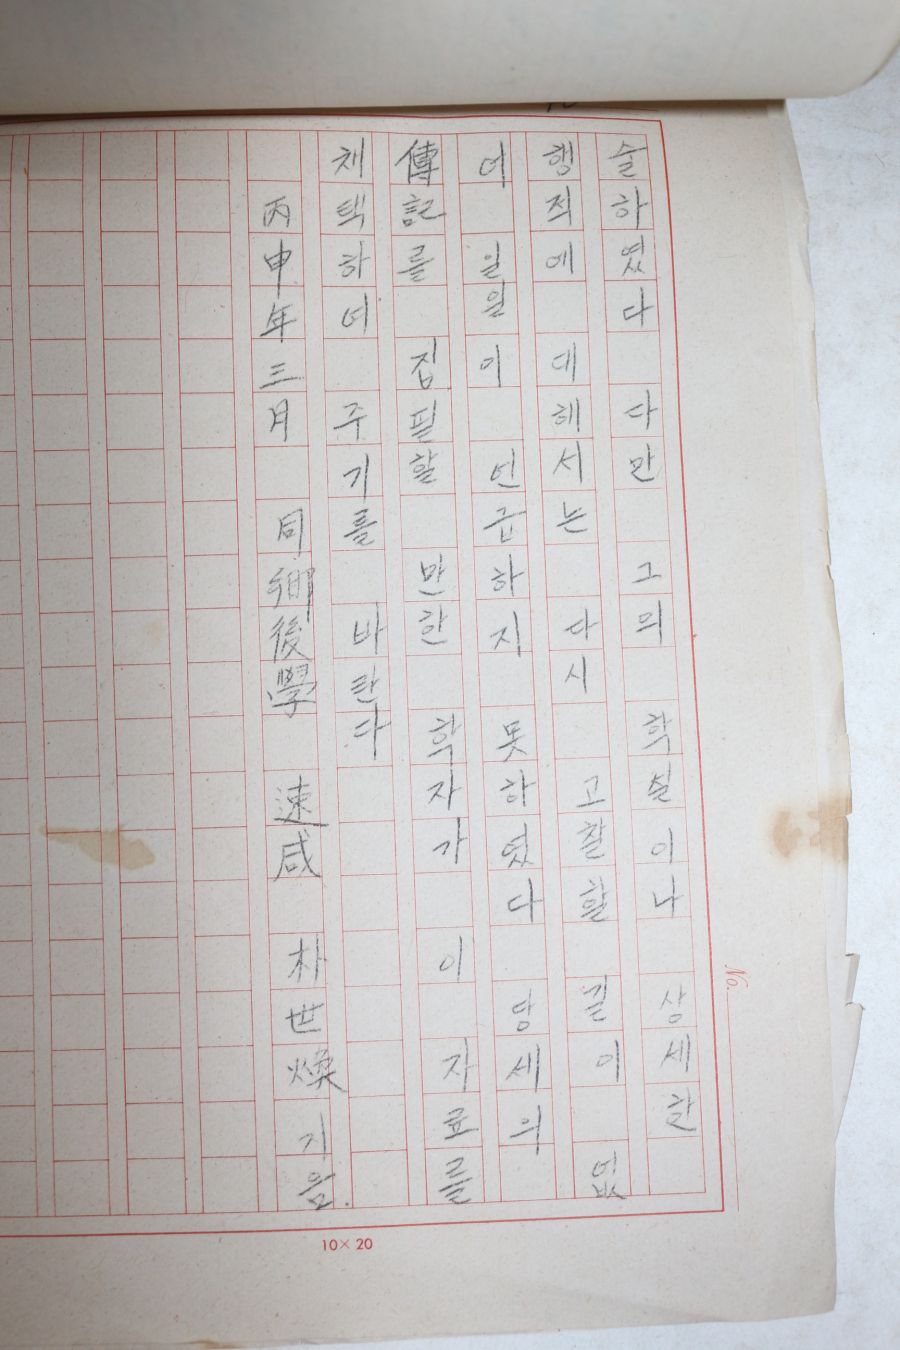 술하였다 다만 그의 학설이나 상세한
행적에 대해서는 다시 고찰할 길이 없
어 일일이 언급하지 못하였다 당세의
傳記를 집필할 만한 학자가 이 자료를
채택하여 주기를 바란다
丙申年三月 同鄉後學 速咸 朴世煥 기음.
No.
10×20